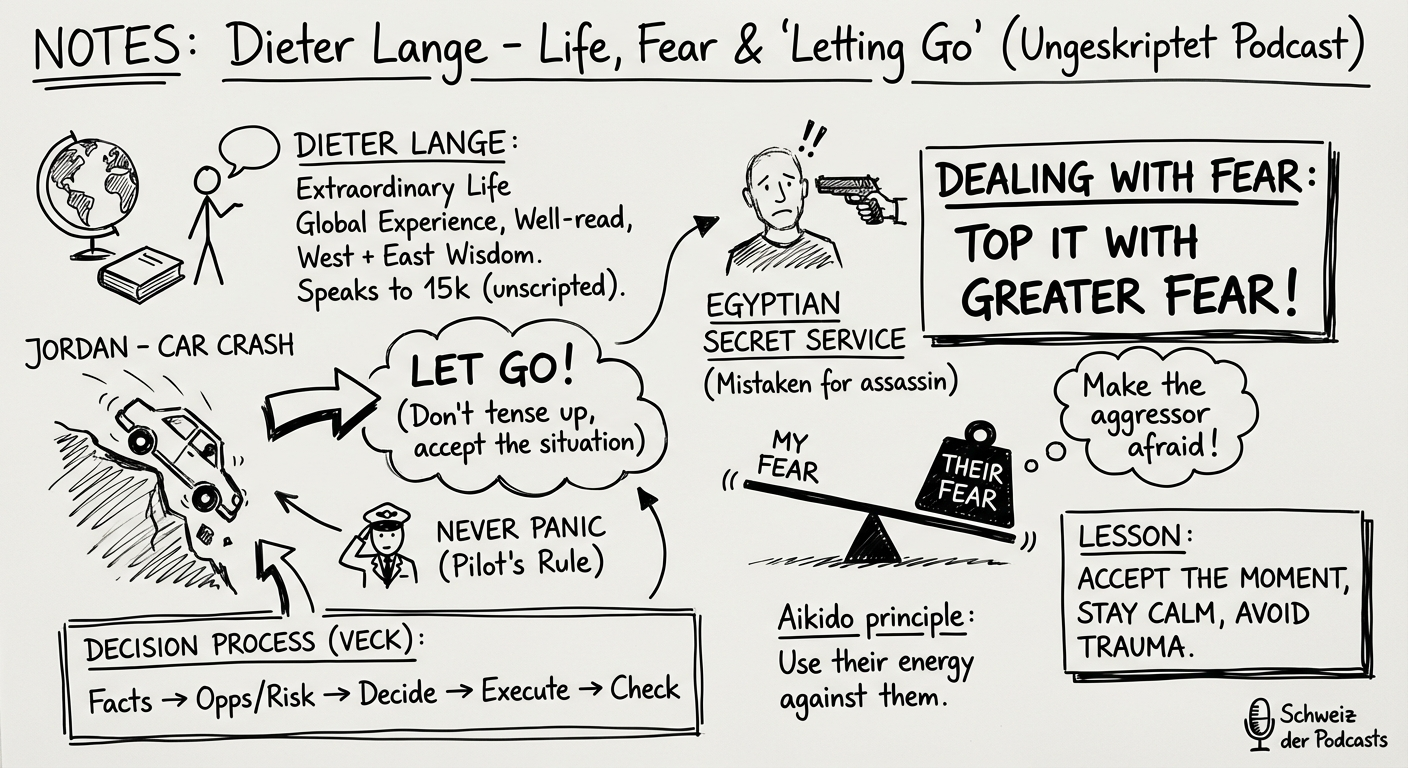 NOTES: Dieter Lange - Life, Fear & 'Letting Go' (Ungeskriptet Podcast)
DIETER LANGE:
Extraordinary Life
Global Experience, Well-read,
West + East Wisdom.
Speaks to 15k (unscripted).
JORDAN - CAR CRASH
LET GO!
(Don't tense up,
accept the situation)
NEVER PANIC
(Pilot's Rule)
DECISION PROCESS (VECK):
Facts → Opps/Risk → Decide → Execute → Check
!!
EGYPTIAN
SECRET SERVICE
(Mistaken for assassin)
DEALING WITH FEAR:
TOP IT WITH
GREATER FEAR!
Make the
aggressor
afraid!
MY
FEAR
THEIR
FEAR
Aikido principle:
Use their energy
against them.
LESSON:
ACCEPT THE MOMENT,
STAY CALM, AVOID
TRAUMA.
Schweiz
der Podcasts